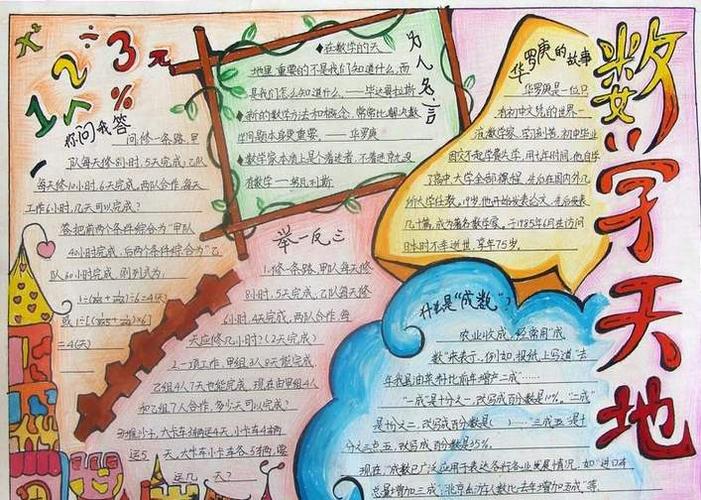 数学天地
1 2 3
÷
%
你问我答
问修一条路,甲
队每天修8小时,5天完成,乙队
每天修10小时,6天完成,两队合作,每天
工作6小时,几天可以完成?
答把前两个条件综合为"甲队
40小时完成,后两个条件综合为"乙
队60小时完成,则列式为
=4(天)
为人名言
◆在数学的天
地里,重要的不是我们知道什么,而
是我们怎么知道什么。——毕达哥拉斯
◆新的数学方法和概念,常常比解决数
学问题本身更重要。——华罗庚
◆数学家本质上是个着迷者,不着迷就没
有数学——努瓦利斯
华罗庚的故事
华罗庚是一位只
有初中文凭的世界一
流数学家,
因交不起学费失学,用七年时间,他自学
了高中
所大学任教。19岁,他开始发表论文,先后发表
几十篇,成为著名数学家。于1985年6月在访问
日本时不幸逝世,享年75岁。
举一反三
1.修一条路,甲队每天修
8小时,5天完成,乙队每天修
6小时,4天完成,两队合作,每
天应修几小时?(2天完成)
2.一项工作,甲组3人8天能完成,
乙组4人7天也能完成,现在由甲组4人
和乙组7人合作,多少天可以完成?
大卡车3辆运4天,小卡车4辆
运5天,大卡车小卡车各5辆,要
运几天?
什么是"成数"?
农业收成,经常用"成
数"来表示,例如,报纸上写道:"去
年我县油菜籽比前年增产二成"……
"一成"是十分之一,改写成百分数是10%。"二成"
是十分之二,改写成百分数是( )……三成五"是十
分之三点五,改写成百分数是35%。
现在,"成数已广泛应用于表达各行各业发展情况,如"进口
总量增加三成"